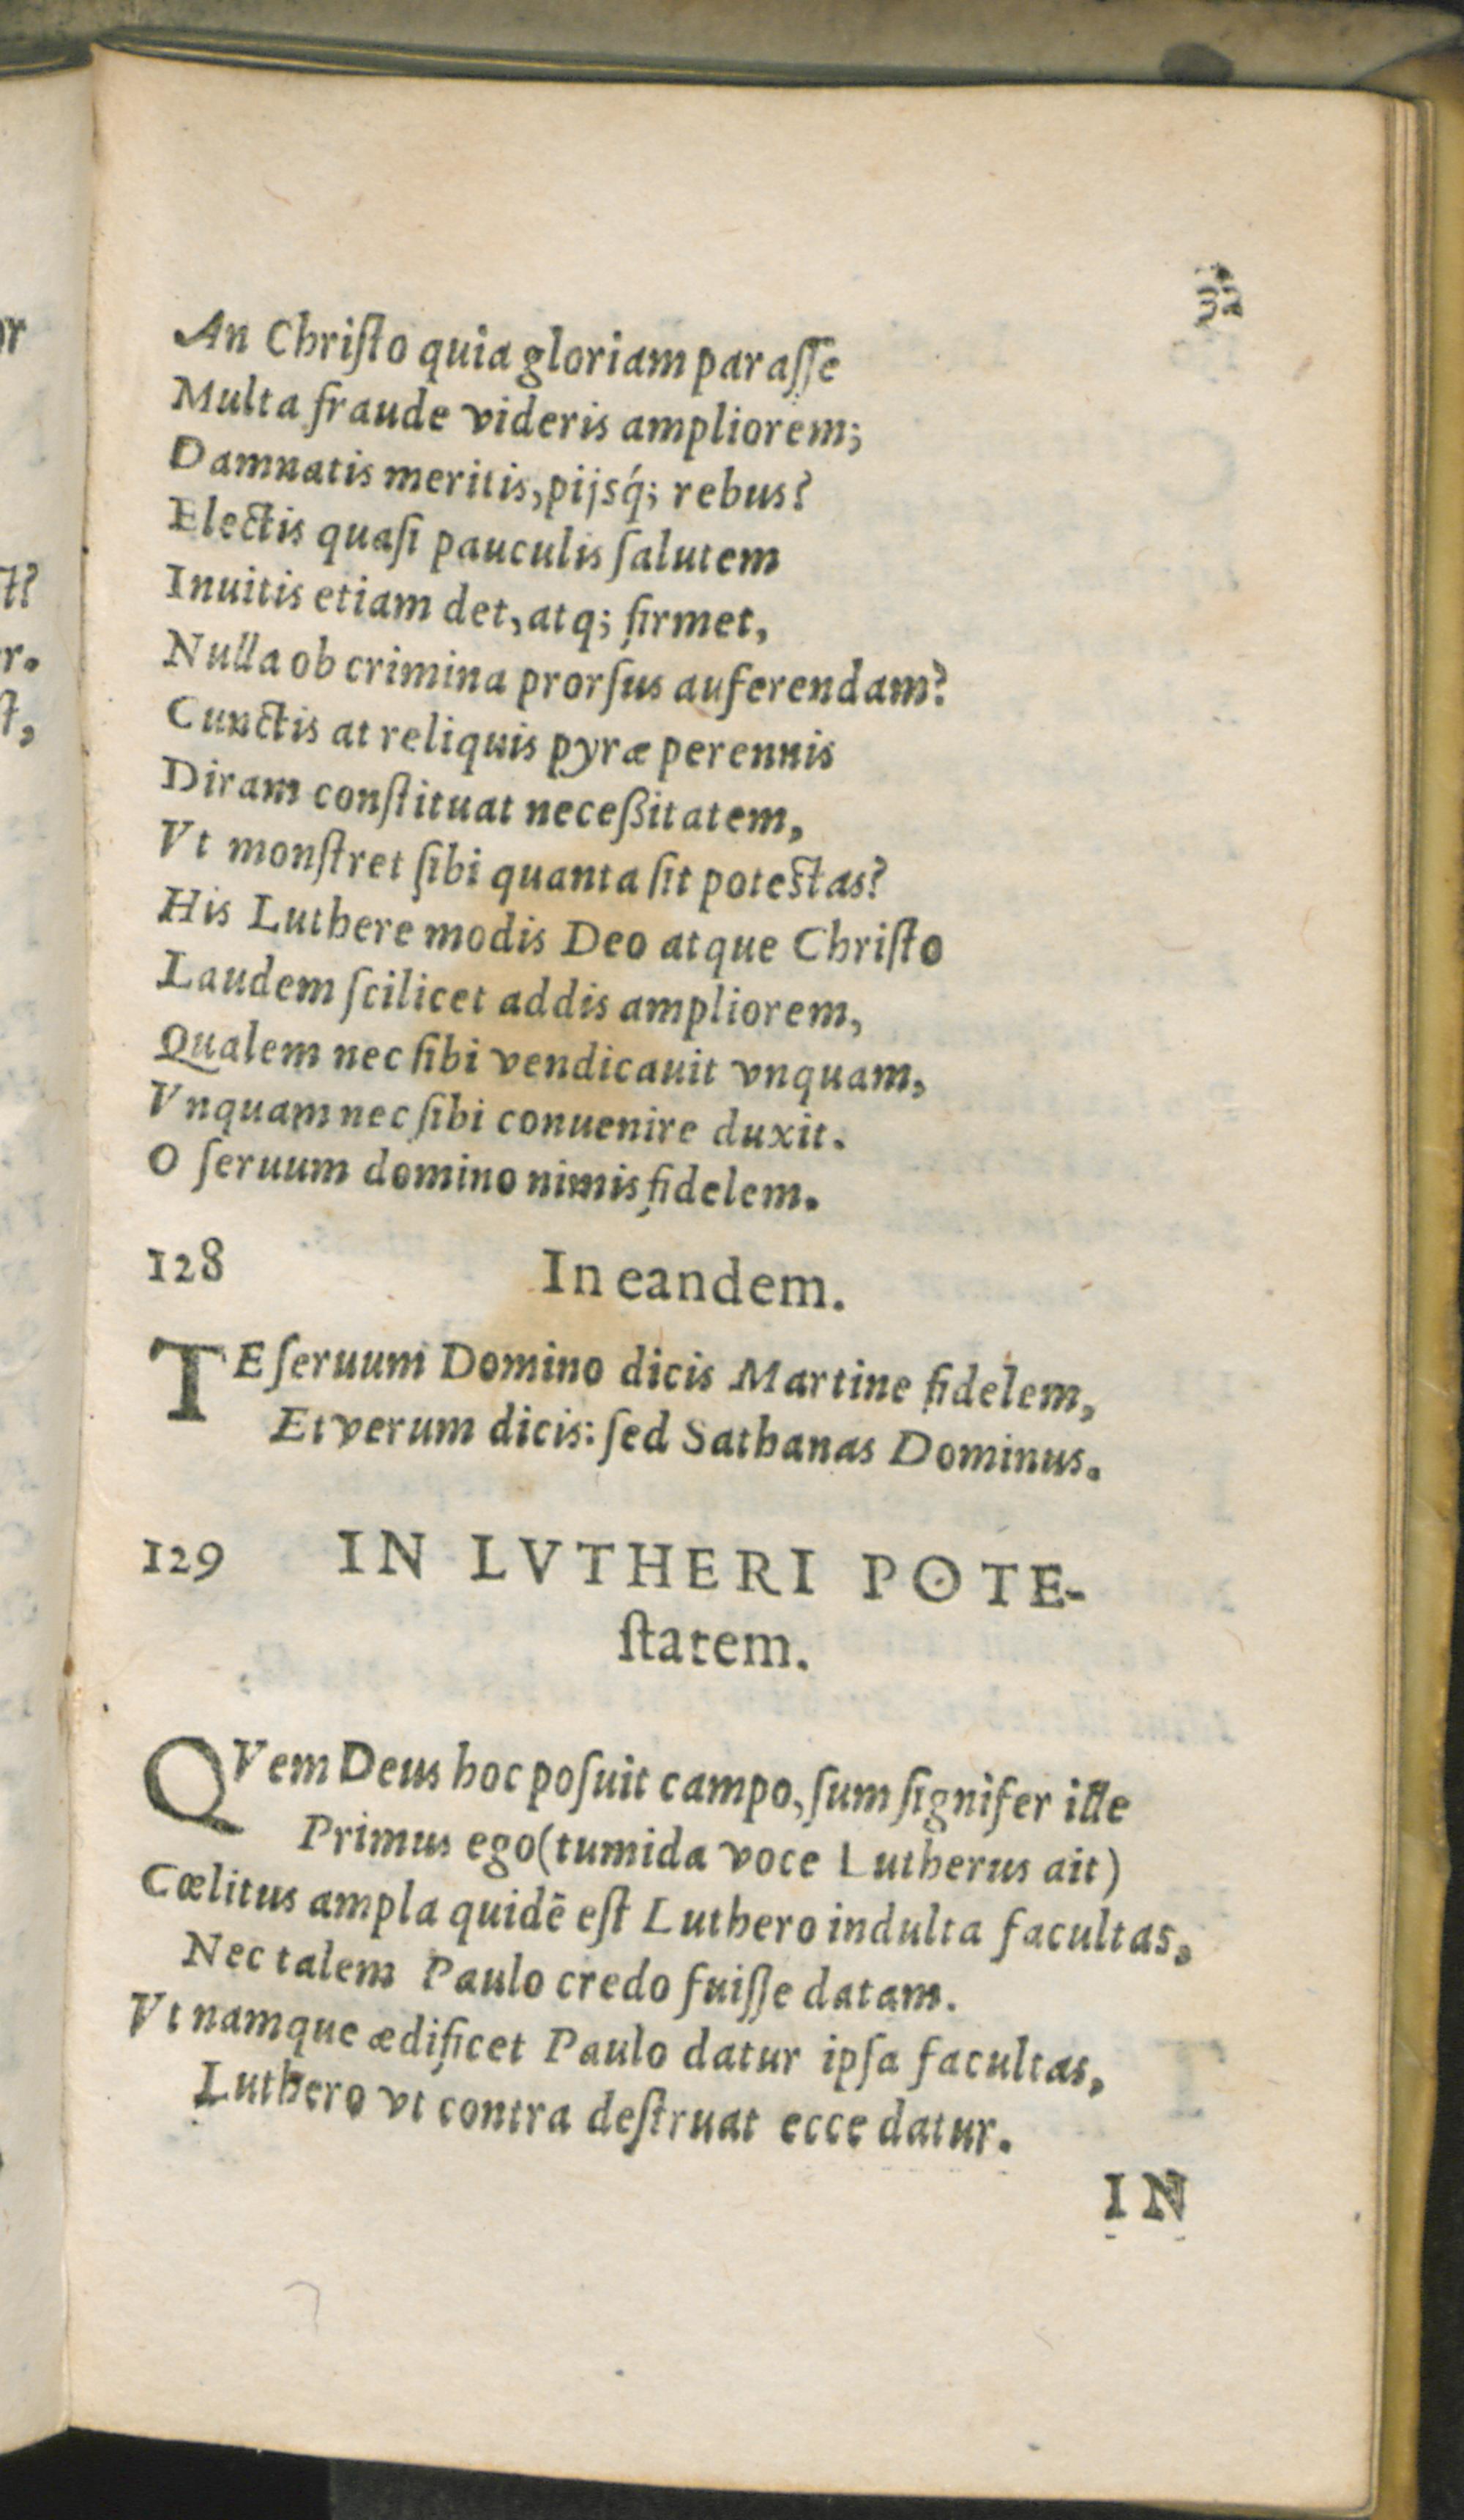 32
An Chriſto quia gloriam paraſſe
Multa fraude videris ampliorem;
Damnatis meritis, pijsq́; rebus?
Electis quaſi pauculis ſalutem
Inuitis etiam det, atq; firmet,
Nulla ob crimina prorſus auferendam?
Cunctis at reliquis pyræ perennis
Diram conſtituat neceßitatem,
Vt monſtret ſibi quanta ſit poteſtas?
His Luthere modis Deo atque Chriſto
Laudem ſcilicet addis ampliorem,
Qualem nec ſibi vendicauit vnquam,
Vnquam nec ſibi conuenire duxit.
O ſeruum domino nimis fidelem.
128 In eandem.
TE ſeruum Domino dicis Martine fidelem,
Et verum dicis: ſed Sathanas Dominus.
129 IN LVTHERI POTE-
ſtatem.
QVem Deus hoc poſuit campo, ſum ſignifer ille
Primus ego (tumida voce Lutherus ait)
Cœlitus ampla quidē eſt Luthero indulta facultas,
Nec talem Paulo credo fuiſſe datam.
Vt namque ædificet Paulo datur ipſa facultas,
Luthero vt contra deſtruat ecce datur.
IN